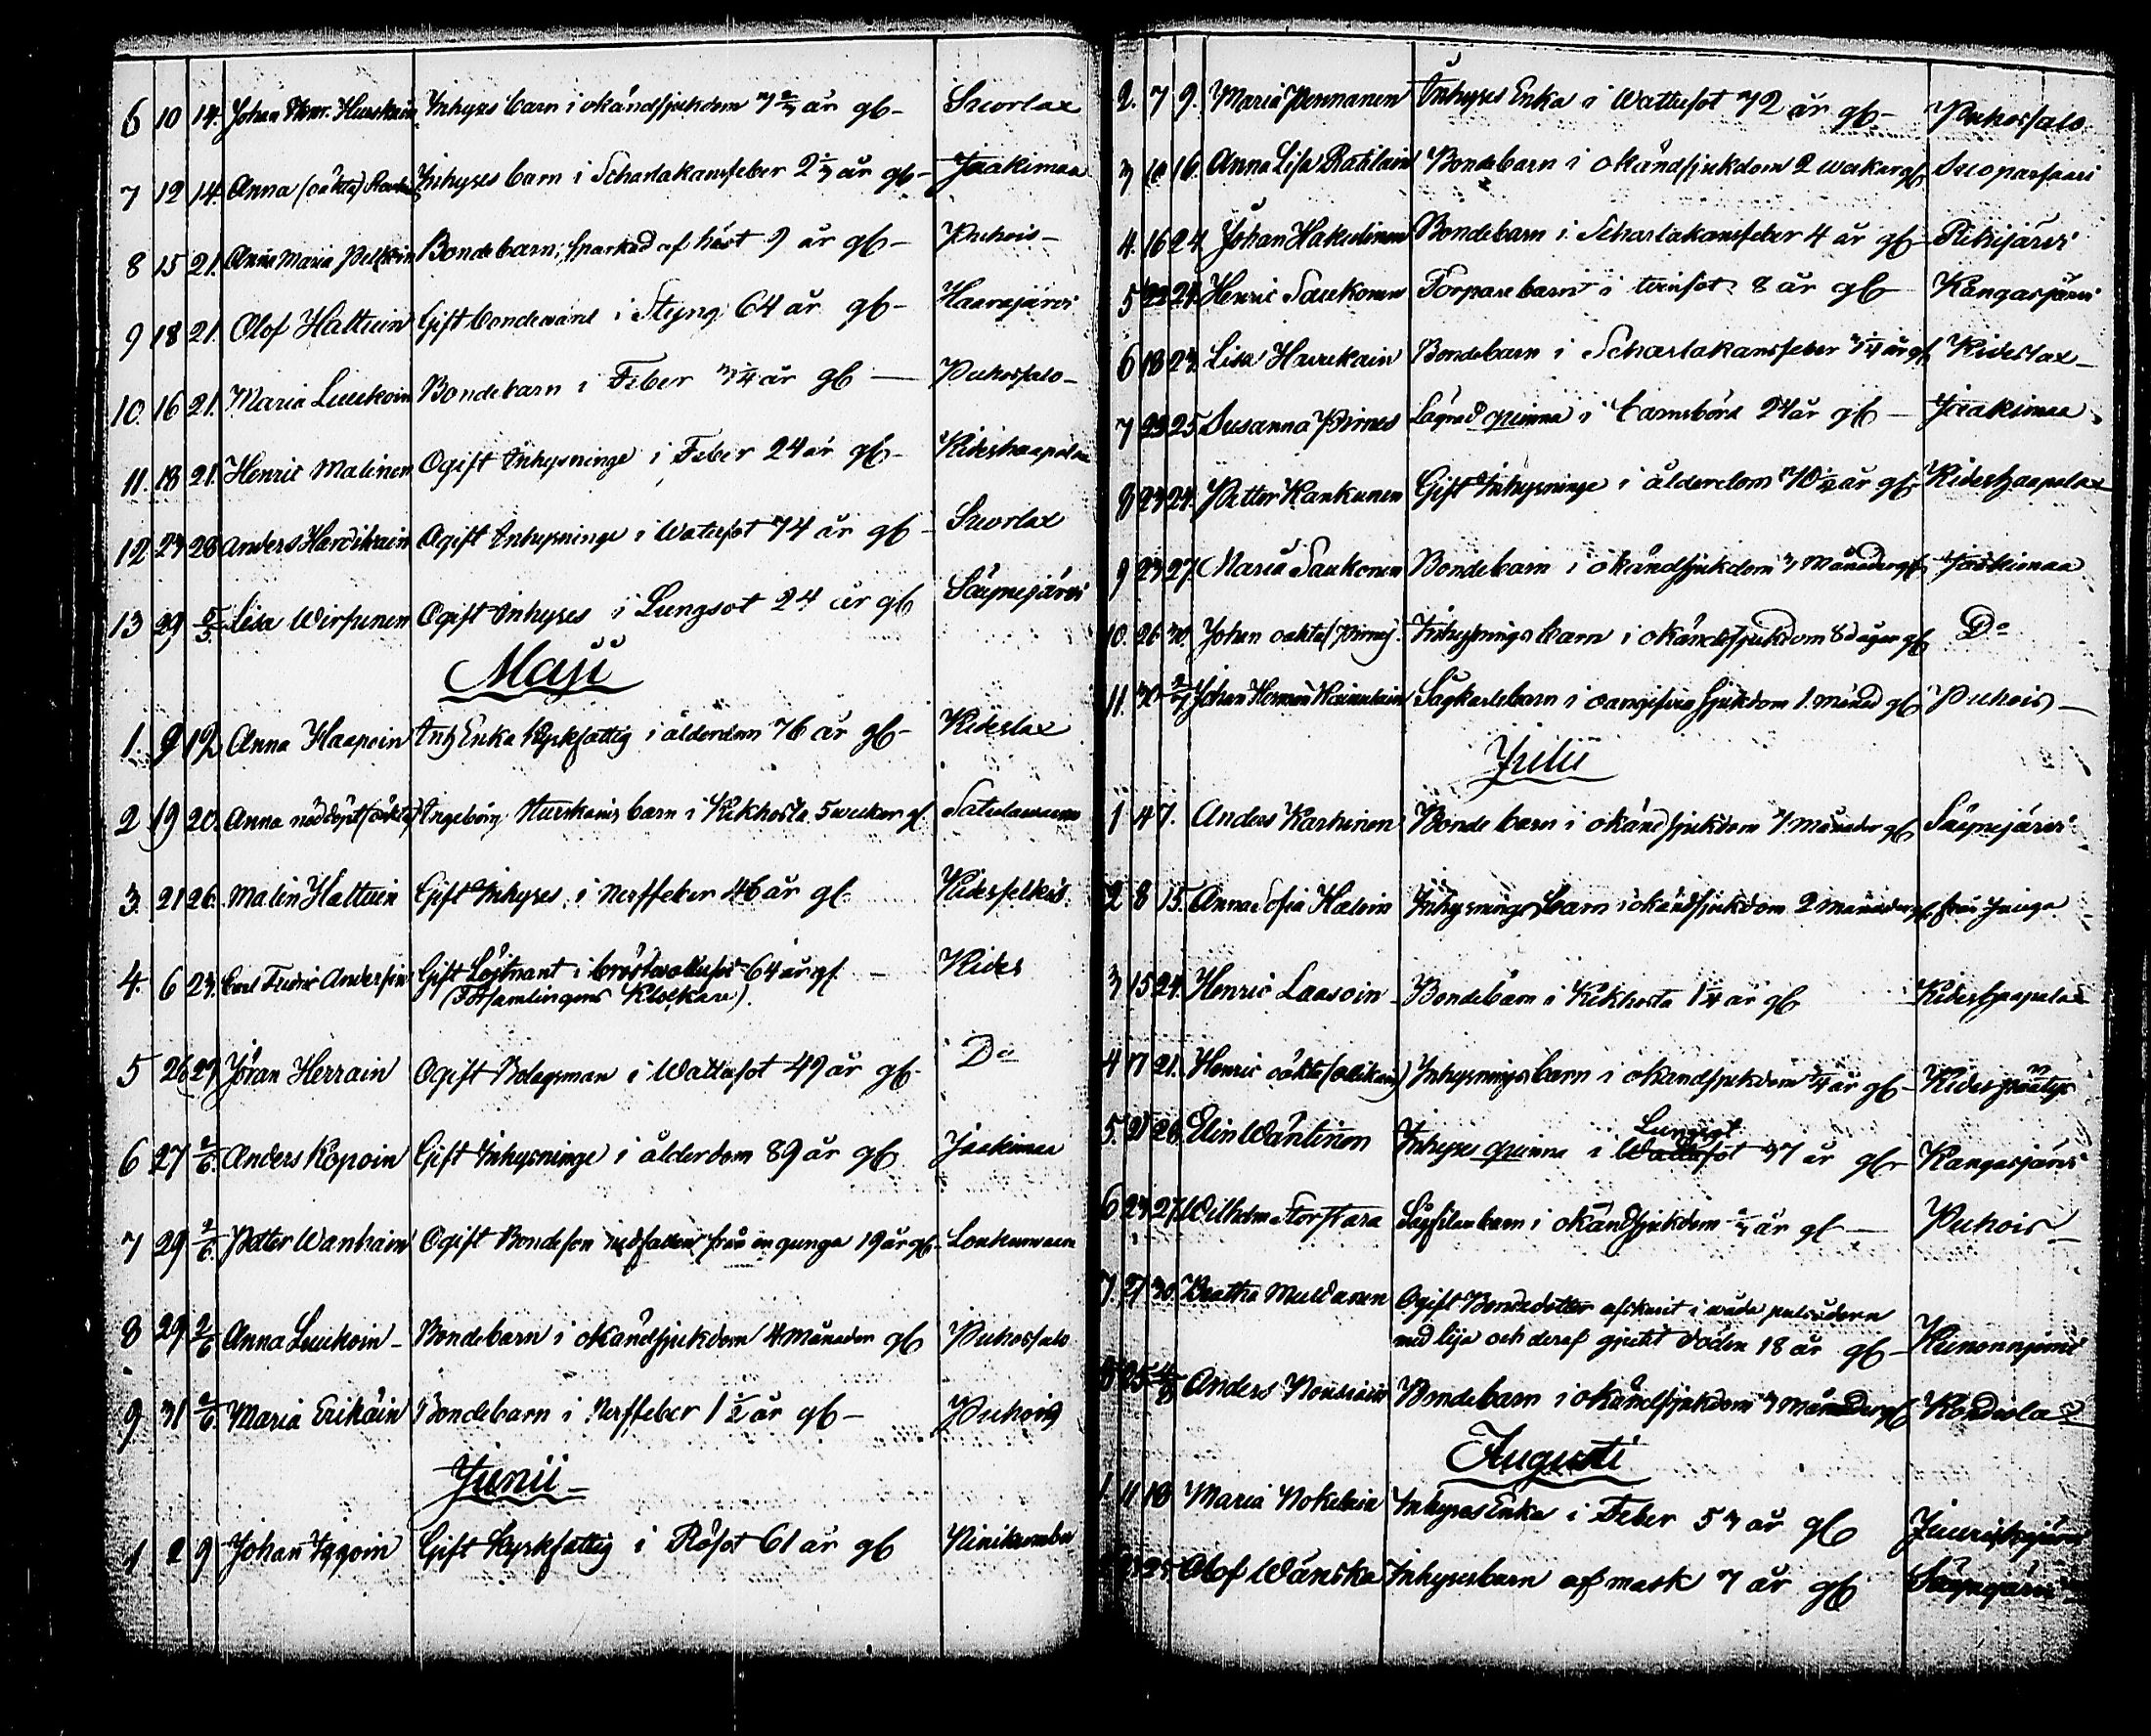 6 10 14. Johan Inhyses barn i okändsjukdom år gb- Suorlax
7 12 14. Anna (oäkta) Inhyses barn i Scharlakansfeber 2 år gb- Jaakimaa
8 15 21. Anna Maria Bondebarn, sparkad af häst 9 år gb- Puhois-
9 18 21. Olof Hattuin Gift bonde i Styng 64 år gb- Haarajärvi
10. 16 21. Maria Luukoin Bondebarn i Feber 3 1/4 år gb — Puhossalo-
11. 18 21. Henric Malinen Ogift Inhysninge i Feber 24 år gb- Kideshaapalax
12 23 28 Anders Ogift Inhysninge i Watusot 74 år gb- Suorlax
13 29 5/5 Lisa Wirsunen Ogift Inhyses i Lungsot 24 år gb Säynejärvi
Maji
1. 9 12 Anna Haapoin Inh Enka kyrkfattig i ålderdom 76 år gb- Kideslax
2 19 20. Anna nöddöpt (oäkta) Ingeborg barn i Kikhosta 5 weckor g. Satulavaara
3. 21 26. Malin Hattuin Gift Inhyses, i Nerffeber 46 år gb. Kidesselkäs
4. 6 23. Carl Fredric Andersson Gift Löjtnant i bröstwattusot 64 år gb. — Kides
(Församlingens Klockare).
5 26 27 Jöran Herrain Ogift Bolagsman i Wattusot 49 år gb- Do
6 27 2/6. Anders Kopoin Gift Inhysninge i ålderdom 89 år gb Jaakimaa
7 29 2/6. Petter Wanhain Ogift Bondeson nedfallen från en gunga 19 år gb- Loukunvaara
8 29 2/6 Anna Luukoin- Bondebarn i okändsjukdom 4 Månader gb Puhossalo
9 31 2/6. Maria Erikäin Bondebarn i Nerffeber 1 1/2 år gb- Puhois
Junii
1 2 9 Johan Gift kyrkfattig i Rösot 61 år gb Niinikumbu
2. 7 9. Maria Pennanen Inhyses Enka i Wattusot 72 år gb- Puhossalo
3 10 16. Anna Lisa Ratilain Bondebarn i okändsjukdom 2 weckor gb Suoparsaari
4. 16 24. Johan Hakulinen Bondebarn i Scharlakansfeber 4 år gb- Riihijärvi
5 22 24. Henric Saukonen Torpare barn i twinsot 8 år gb Kangasjärvi
6 18 23. Lisa Haurikain Bondebarn i Scharlakansfeber 3 1/4 år gb Kideslax-
7 22 25 Susanna Pirnes qwinna i barnsbörd 24 år gb- Jaakimaa
8 23 24. Petter Kankunen Gift Inhysninge i ålderdom 70 1/2 år gb- Kideshaapalax
9 23 27. Maria Saukonen Bondebarn i okändsjukdom 3 Månader gb Jaakimaa
10. 26 30. Johan oäkta (Pirnes). Inhysnings barn i okändsjukdom 8 dagar gb Do
11. 30 2/7 Johan Herman Sågkarlsbarn i oangifven sjukdom 1. Månad gb Puhois-
Julii
1 4 7. Anders Karhinen Bonde barn i okändsjukdom 7 Månader gb Säynejärvi
2 8 15. Anna Sofia Halain Inhysninge barn i okändsjukdom 2 Månader gb. från Juuga
3 15 24. Henric Laasoin- Bondebarn i Kikhosta 1 1/4 år gb Kideshaapalax
4 17 21. Henric oäkta (Ollikain) Inhysningsbarn i okändsjukdom 3/4 år gb- Kides
5. 21 28. Elin Wäntinen Inhyses qwinna i Wattusot Lungsot 37 år gb- Kangasjärvi
6 23 27. Wilhelm Storskara barn i okändsjukdom år gb- Puhois-
7 27 30. Beatha Muldanen Ogift Bondedotter afskurit i wåda pulsådern
med lija och deraf gjutit döden 18 år gb- Kiimonnjärvi
8 25 Anders Nousiain Bondebarn i okändsjukdom 3 Månader gb Kondeslax
Augusti
1. 11 18 Maria Nokelain Inhyses Enka i Feber 53 år gb
25. Olof Wänska Inhysesbarn af mask 7 år gb Säynejärvi